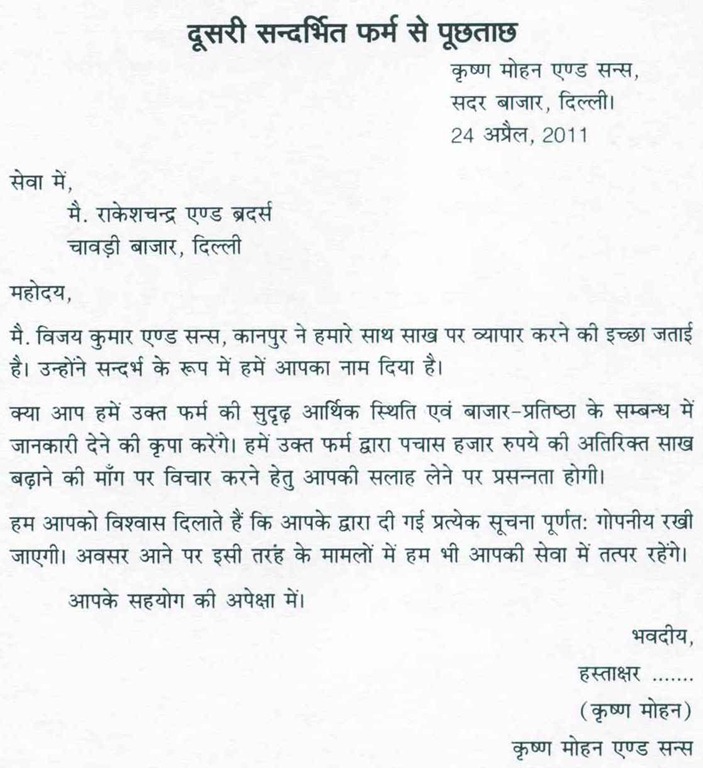 दूसरी सन्दर्भित फर्म से पूछताछ
कृष्ण मोहन एण्ड सन्स,
सदर बाजार, दिल्ली।
24 अप्रैल, 2011
सेवा में,
मै. राकेशचन्द्र एण्ड ब्रदर्स
चावड़ी बाजार, दिल्ली
महोदय,
मै. विजय कुमार एण्ड सन्स, कानपुर ने हमारे साथ साख पर व्यापार करने की इच्छा जताई
है। उन्होंने सन्दर्भ के रूप में हमें आपका नाम दिया है।
क्या आप हमें उक्त फर्म की सुदृढ़ आर्थिक स्थिति एवं बाजार-प्रतिष्ठा के सम्बन्ध में
जानकारी देने की कृपा करेंगे। हमें उक्त फर्म द्वारा पचास हजार रुपये की अतिरिक्त साख
बढ़ाने की माँग पर विचार करने हेतु आपकी सलाह लेने पर प्रसन्नता होगी।
हम आपको विश्वास दिलाते हैं कि आपके द्वारा दी गई प्रत्येक सूचना पूर्णत: गोपनीय रखी
जाएगी। अवसर आने पर इसी तरंह के मामलों में हम भी आपकी सेवा में तत्पर रहेंगे।
आपके सहयोग की अपेक्षा में।
भवदीय,
हस्ताक्षर .......
(कृष्ण मोहन)
कृष्ण मोहन एण्ड सन्स